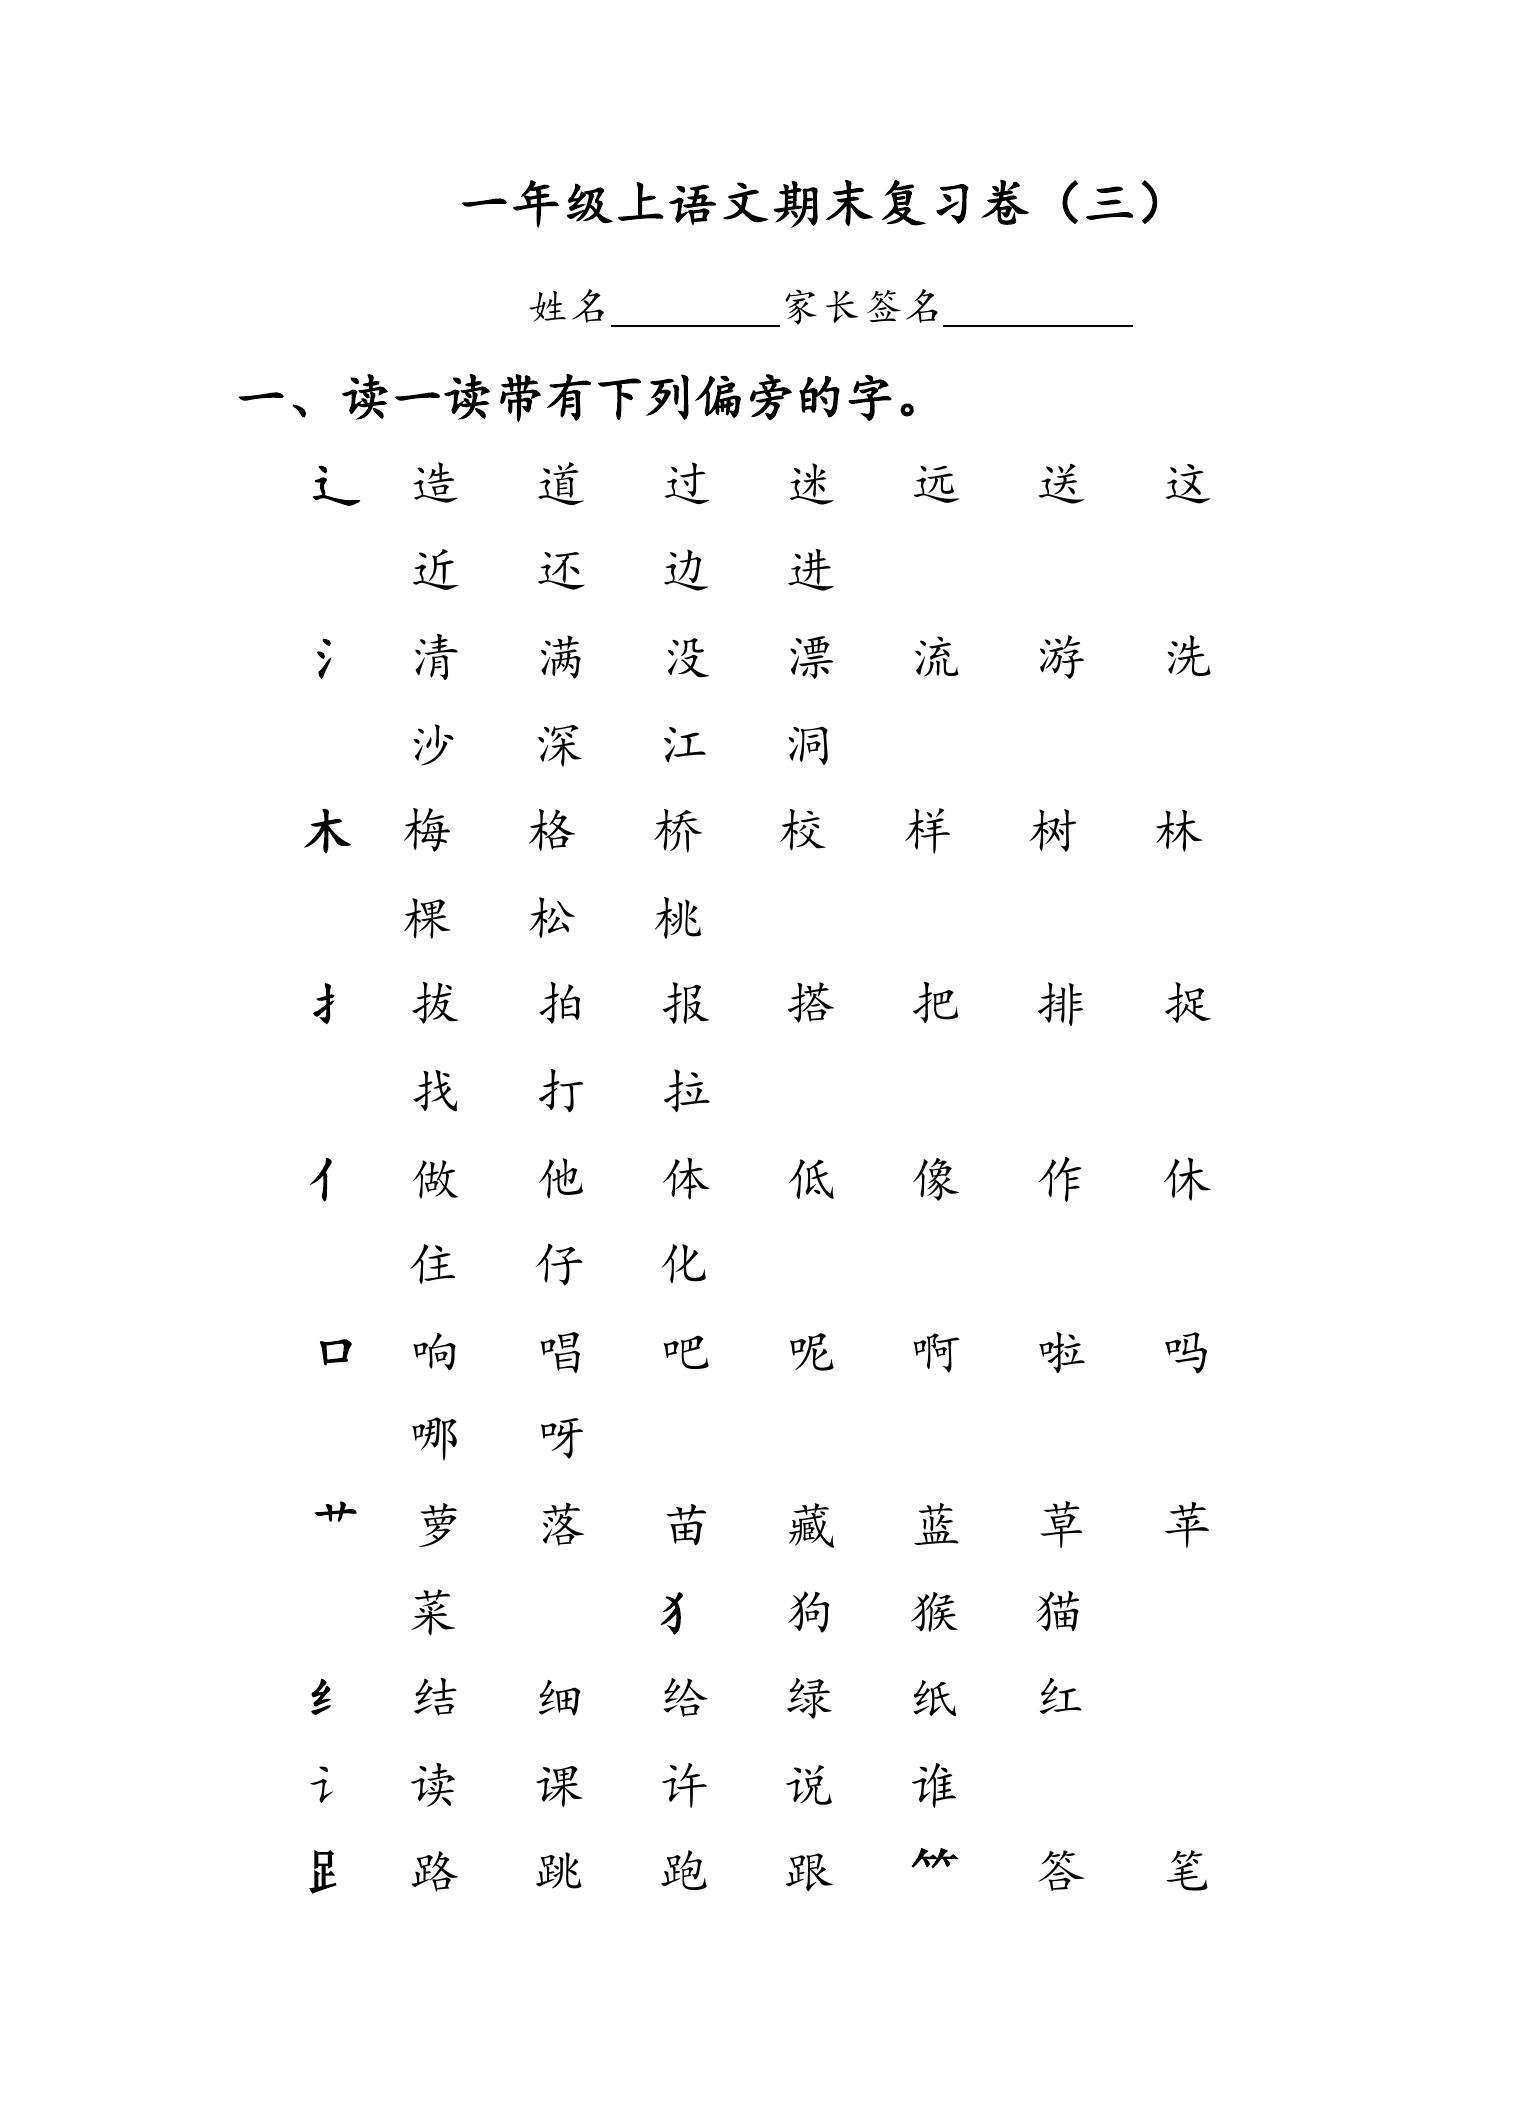 一年级上语文期末复习卷（三）
姓名________家长签名_________
一、读一读带有下列偏旁的字。
辶 造 道 过 迷 远 送 这
近 还 边 进
氵 清 满 没 漂 流 游 洗
沙 深 江 洞
木 梅 格 桥 校 样 树 林
棵 松 桃
扌 拔 拍 报 搭 把 排 捉
找 打 拉
亻 做 他 体 低 像 作 休
住 仔 化
口 响 唱 吧 呢 啊 啦 吗
哪 呀
艹 萝 落 苗 藏 蓝 草 苹
菜 犭 狗 猴 猫
纟 结 细 给 绿 纸 红
讠 读 课 许 说 谁
𧾷 路 跳 跑 跟 ⺮ 答 笔